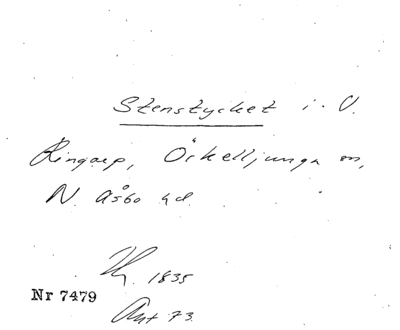 Stenstycket i. V.
Ringarp, Örkelljunga sn,
N. Åsbo hd.
1835
Nr 7479
73.